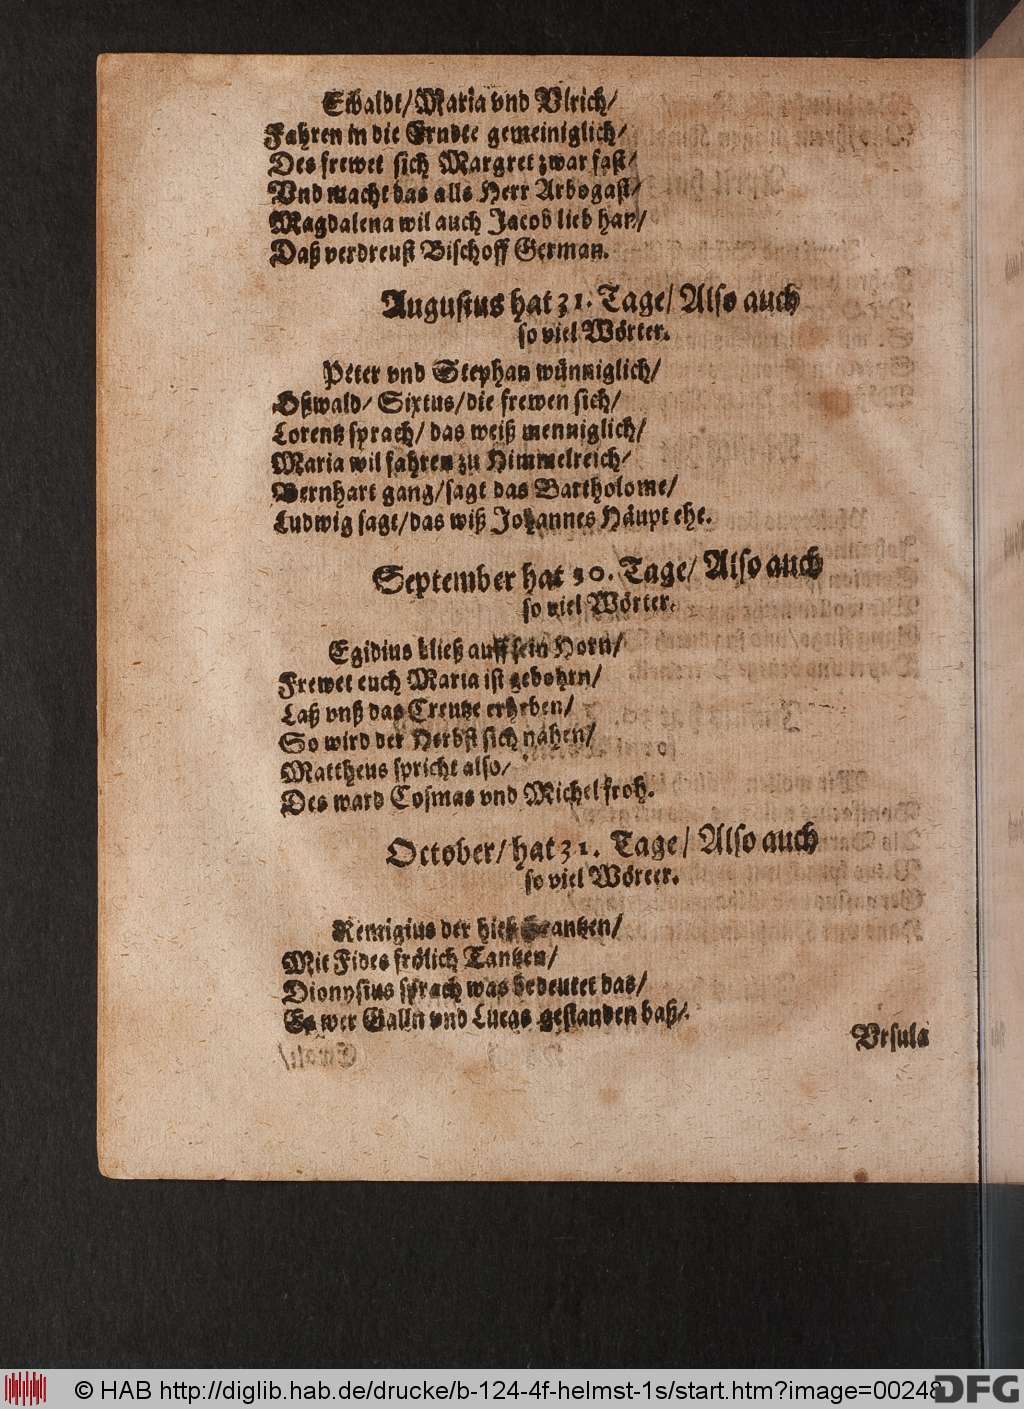 Ewaldt/ Maria vnd Vlrich/
Fahren in die Erndte gemeiniglich/
Des frewet sich Margret zwar fast/
Vnd macht das alls Herr Arbogast/
Magdalena wil auch Jacob lieb han/
Daß verdreust Bischoff German.
Augustus hat 31. Tage/ Also auch
so viel Wörter.
Peter vnd Stephan wünniglich/
Oßwald/ Sixtus/ die frewen sich/
Lorentz sprach/ das weiß menniglich/
Maria wil fahren zu Himmelreich/
Bernhart gang/ sagt das Bartholome/
Ludwig sagt/ das wiß Johannes Häupt ehe.
September hat 30. Tage/ Also auch
so viel Wörter.
Egidius bließ auff sein Horn/
Frewet euch Maria ist gebohrn/
Laß vnß das Creutze erheben/
So wird der Herbst sich nähen/
Mattheus spricht also/
Des ward Cosmas vnd Michel froh.
October/ hat 31. Tage/ Also auch
so viel Wörter.
Remigius der hieß Frantzen/
Mit Fides frölich Tantzen/
Dionysius sprach was bedeutet das/
Es wer Galln vnd Lucas gestanden baß/
Vrsula
© HAB http://diglib.hab.de/drucke/b-124-4f-helmst-1s/start.htm?image=00248
DFG